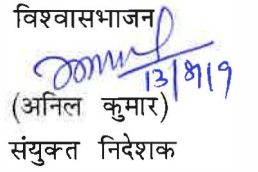 विश्वासभाजन
13/8/19
(अनिल कुमार)
संयुक्त निदेशक